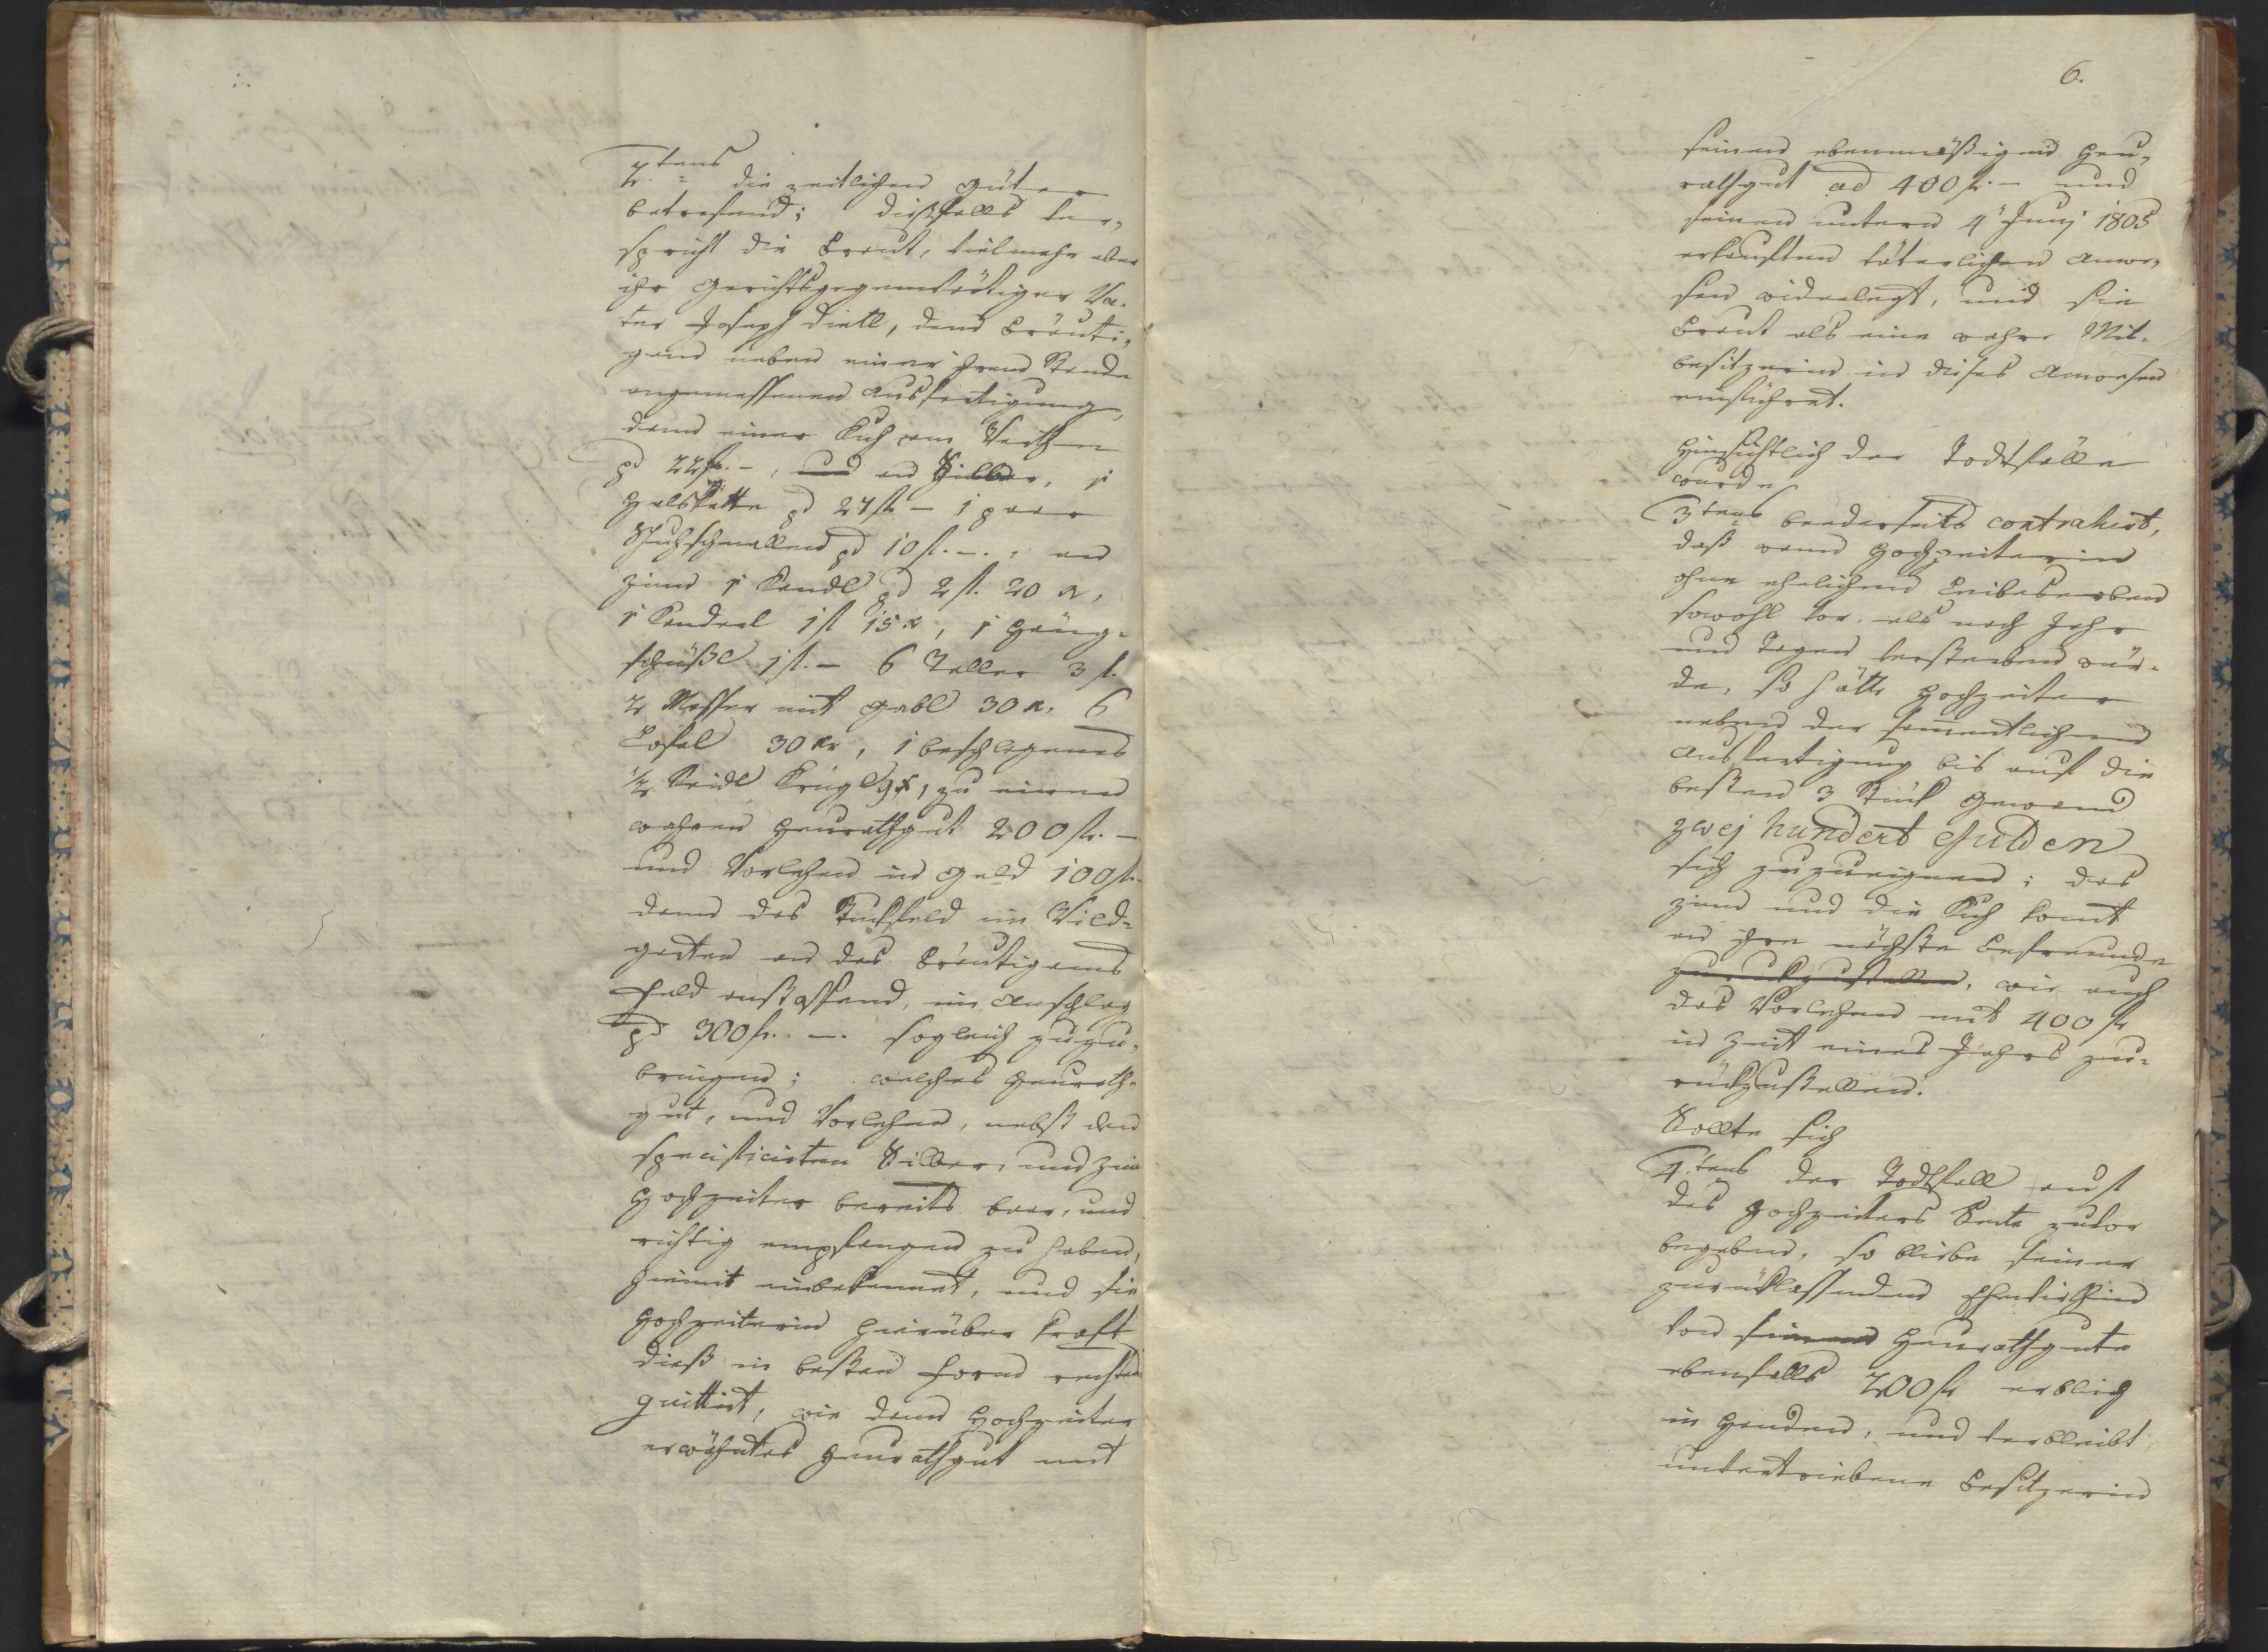 2tens die zeitlichen Güter
betrefend; dießfalls ver,,
spricht die Braut, vielmehr aber
ihr Gerichtsgegenwärtiger Va-
ter Joseph Dietl, dem Bräuti,,
gam neben einer ihrem Stande
angemessenen Ausfertigung,
dann einer Kuh am Werthe
pd 22 fl. –, an Silber, 1
Halskette pd 24 fl – 1 paar
Schuhschnallen pd 10 fl. –. , an
Zinn 1 Kandl pd 2 fl. 20 x,
1 Kandeel 1 fl 15 x, 1 Häng-
schüßl 1 fl. – 6 Teller 3 fl.
2 Messer mit Gabl 30 x, 6
Löfel 30 kr, 1 beschlagenes
1/2 Seidl Krügl 9 x, zu einem
wahren Heurathgut 200 fl. –
und Vorlehen in Geld 100 fl.
dann das Feld im Wild-
garten an des Bräutigams
Feld anstossend, im Anschlag
pd 300 fl. –. sogleich zuzu-
bringen; welches Heurath-
gut, und Vorlehen, nebst dem
specificirten Silber, und Zinn
Hochzeiter bereits baar, und
richtig empfangen zu haben,
hiemit einbekennet, und sie
Hochzeiterin hierüber kraft
dieß in besten Form rechtens
quittirt, wie dann Hochzeiter
erwähntes Heurathgut mit
6.
seinem ebenmäßigen Heu,,
rathgut ad 400 fl. – und
seinem unterm 4. Junj 1805
erkauften väterlichen Anwe,,
sen widerlegt, und sie
Braut als eine wahre Mit-
besitzerin in dises Anwesen
einführet.
Hinsichtlich der Todtfälle
wurde
3tens beederseits contrahirt,
daß wenn Hochzeiterin
ohne ehelichen Leibeserben
sowohl vor, als nach Jahr
und Tagen versterben wür-
de, so hätte Hochzeiter
nebend der sammentlichen
Ausfertigung bis auf die
besten 3 Stück Gewand
zwej hundert Gulden
sich zuzueignen; das
Zinn und die Kuh komt
an ihre nächste Befreunde
zurukzustellen, wie auch
das Vorlehen mit 400 fl
in Zeit eines Jahrs zu-
rückzustellen.
Sollte sich
4.tens der Todtfall auf
des Hochzeiters Seite zuvor
begeben, so bliebe seiner
zurücklassenden Ehewirthin
von seinem Heurathgute
ebenfalls 200 fl erblich
in Handen, und verbleibt
unvertriebene Besitzerin